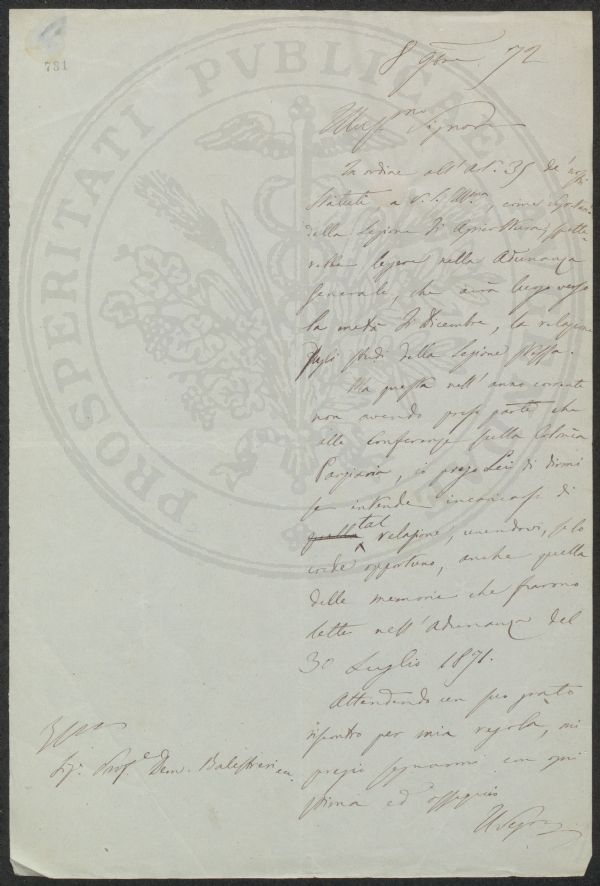 731
8 9bre 72
Illus.mo Signore
In ordine all'Art. 35 de'
Statuti, a V. S. Ill.ma, come
della Sezione di Agricoltura,
leggere nella Adunanza
Generale, che avrà luogo verso
la metà di Dicembre, la relazione
degli studi della Sezione stessa.
Ma questa nell'anno corrente
non avendo preso parte che
alle Conferenze sulla Colonia
Parziaria, io prego Lei di dirmi
se intende incaricarsi di
tal
relazione, unendovi, se lo
crede opportuno, anche quella
delle memorie che furono
lette nell'Adunanza del
30 Luglio 1871.
Attendendo un suo grato
riscontro per mia regola, mi
pregio segnarmi con ogni
stima ed ossequio
Il Seg.
Sig. Prof.e Dom. Balestreri
PROSPERITATI PVBLICAE